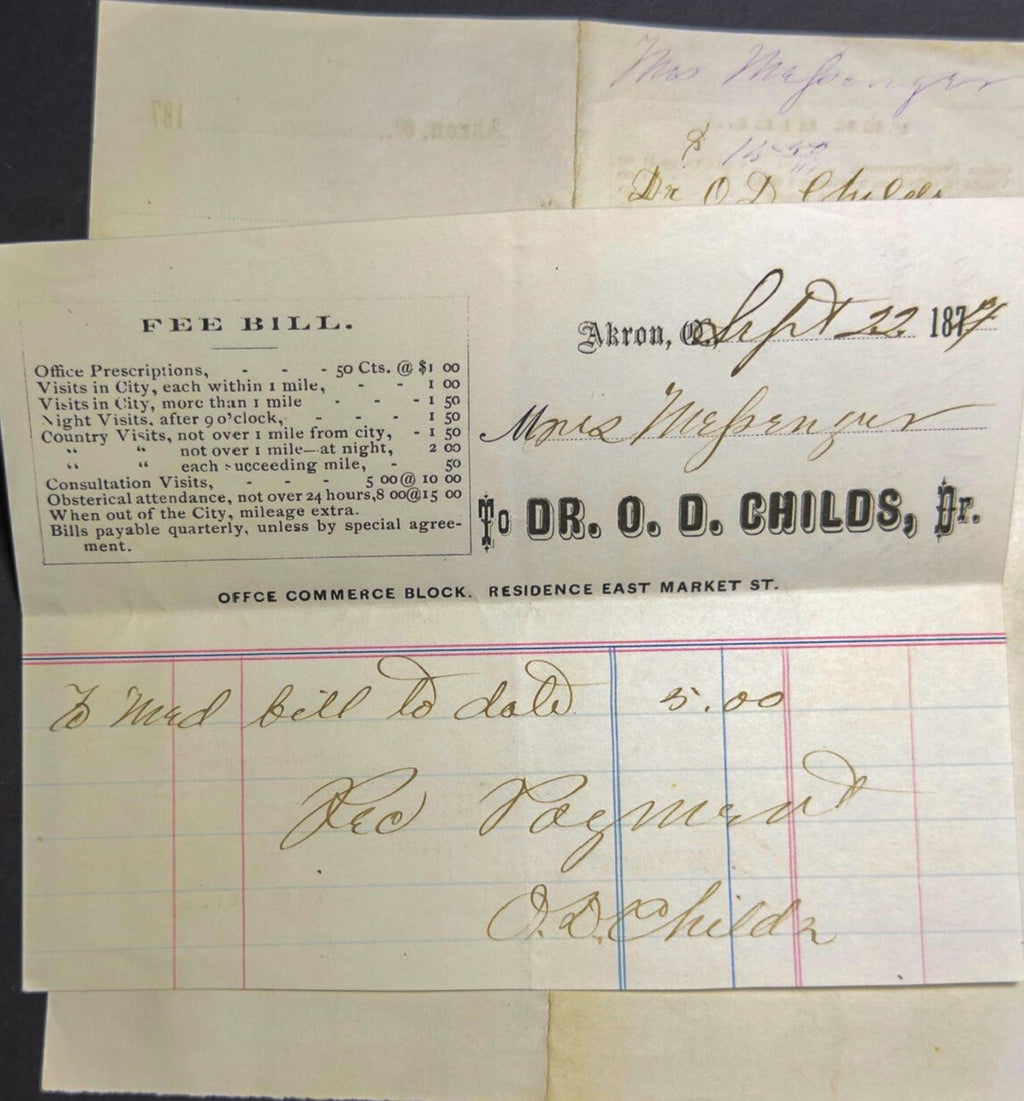 Mrs Messenger
$ 15 50
Dr O D Childs
187
Akron, O.,
FEE BILL.
Office Prescriptions, - - - 50 Cts. @ $1 00
Visits in City, each within 1 mile, - - 1 00
Visits in City, more than 1 mile - - - 1 50
Night Visits, after 9 o'clock, - - - - 1 50
Country Visits, not over 1 mile from city, - 1 50
“ “ not over 1 mile—at night, 2 00
“ “ each succeeding mile, - 50
Consultation Visits, - - - 5 00 @ 10 00
Obsterical attendance, not over 24 hours, 8 00@15 00
When out of the City, mileage extra.
Bills payable quarterly, unless by special agree-
ment.
Akron, O. Sept 22 1879
Mrs Messenger
To DR. O. D. CHILDS, Dr.
OFFCE COMMERCE BLOCK. RESIDENCE EAST MARKET ST.
To Med bill to date 5.00
Rec Payment
O.D. Childs